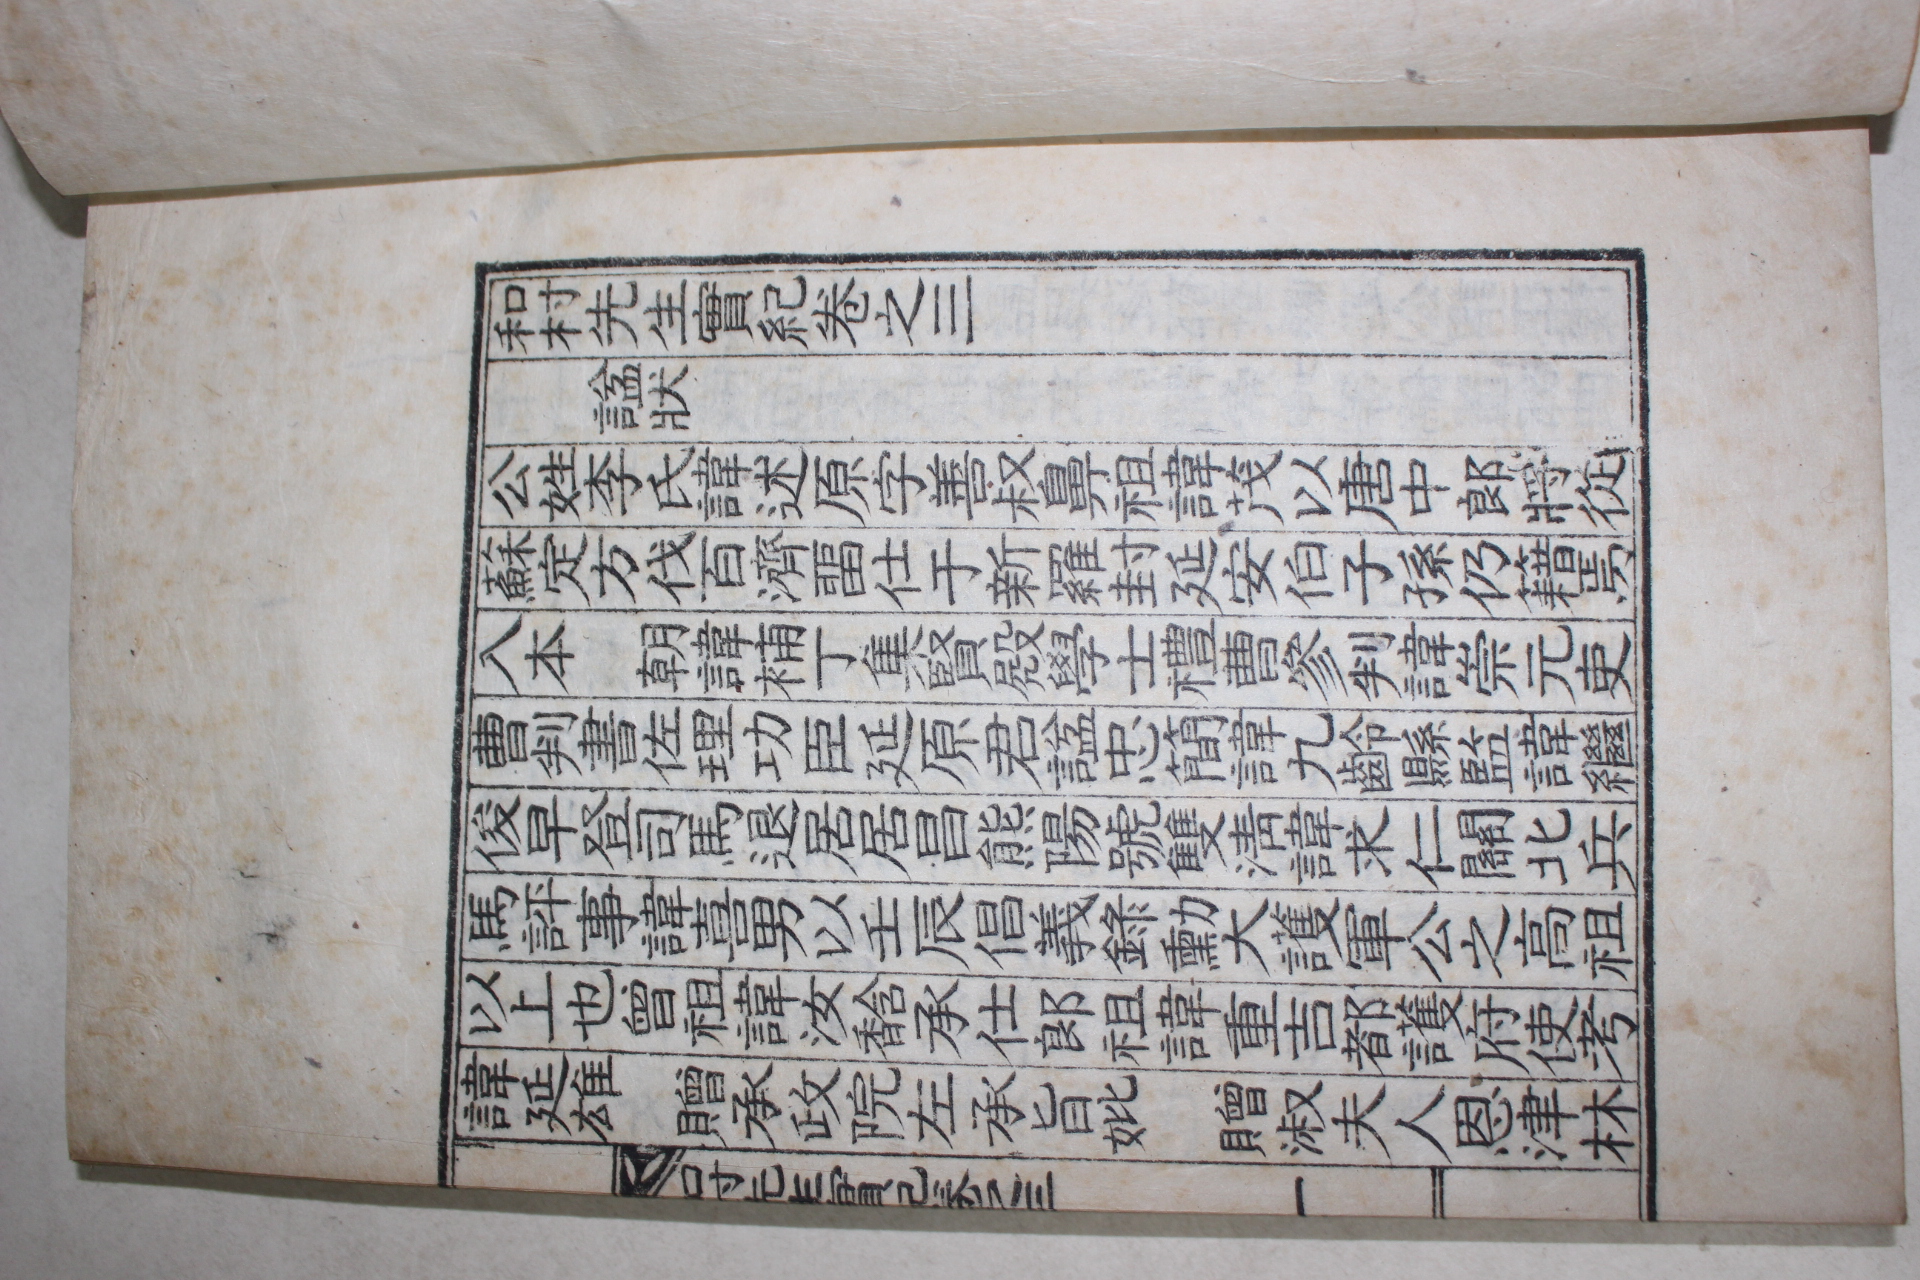 和村先生實紀卷之三
諡狀
公姓李氏諱述原字善叔鼻祖諱茂以唐中郎將從
蘇定方伐百濟畱仕于新羅封延安伯子孫仍籍焉
入本 朝諱補丁集賢殿學士禮曹參判諱崇元吏
曹判書佐理功臣延原君諡忠簡諱九齡縣監諱繼
俊早登司馬退居居昌熊陽號雙淸諱求仁關北兵
馬評事諱喜男以壬辰倡義錄勳大護軍公之高祖
以上也曾祖諱汝馠承仕郎祖諱重吉都護府使考
諱延雄 贈承政院左承旨妣 贈淑夫人恩津林
和村先生實紀卷之三
一